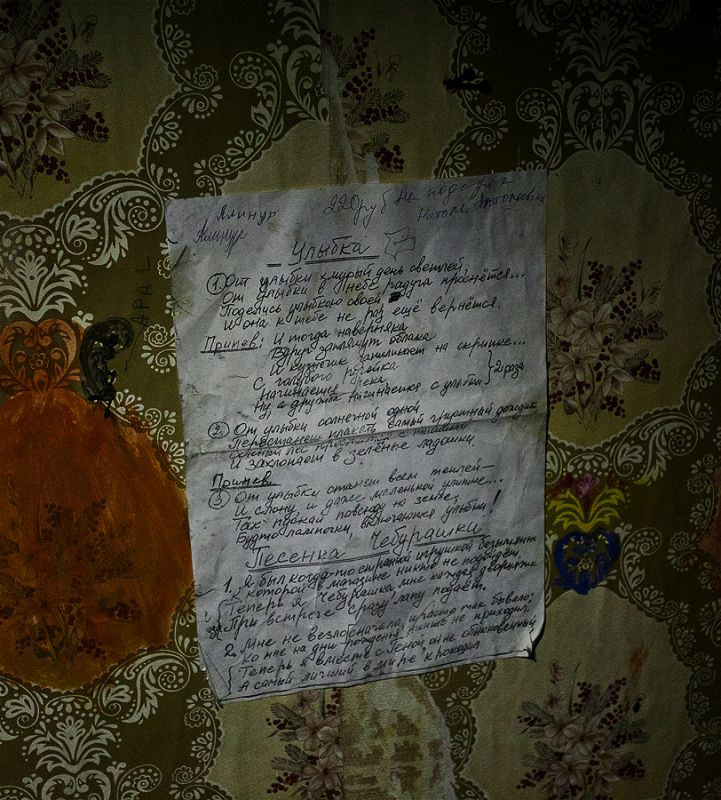 Алинур 220 руб на подарок
Алинур
Улыбка
АРАЛ
① От улыбки хмурый день светлей,
От улыбки в небе радуга проснётся...
Поделись улыбкою своей
И она к тебе не раз ещё вернётся.
Припев: И тогда наверняка
Вдруг запляшут облака
И кузнечик запиликает на скрипке...
С голубого ручейка
Начинается река
Ну а дружба начинается с улыбки
} 2 раза
② От улыбки солнечной одной
Перестанет плакать самый грустный дождик
Сонный лес простится с тишиной
И захлопает в зелёные ладошки.
Припев
③ От улыбки станет всем теплей —
И слону и даже маленькой улитке...
Так пускай повсюду на земле
Будто лампочки включаются улыбки!
Песенка Чебурашки
1. Я был когда-то странной игрушкой безымянной
К которой в магазине никто не подойдёт.
Теперь я Чебурашка, мне каждая дворняжка
При встрече сразу лапу подаёт.
2. Мне не везло сначала, и часто так бывало;
Ко мне на день рождения никто не приходил.
Теперь я вместе с Геной, он не обыкновенный
А самый лучший в мире крокодил